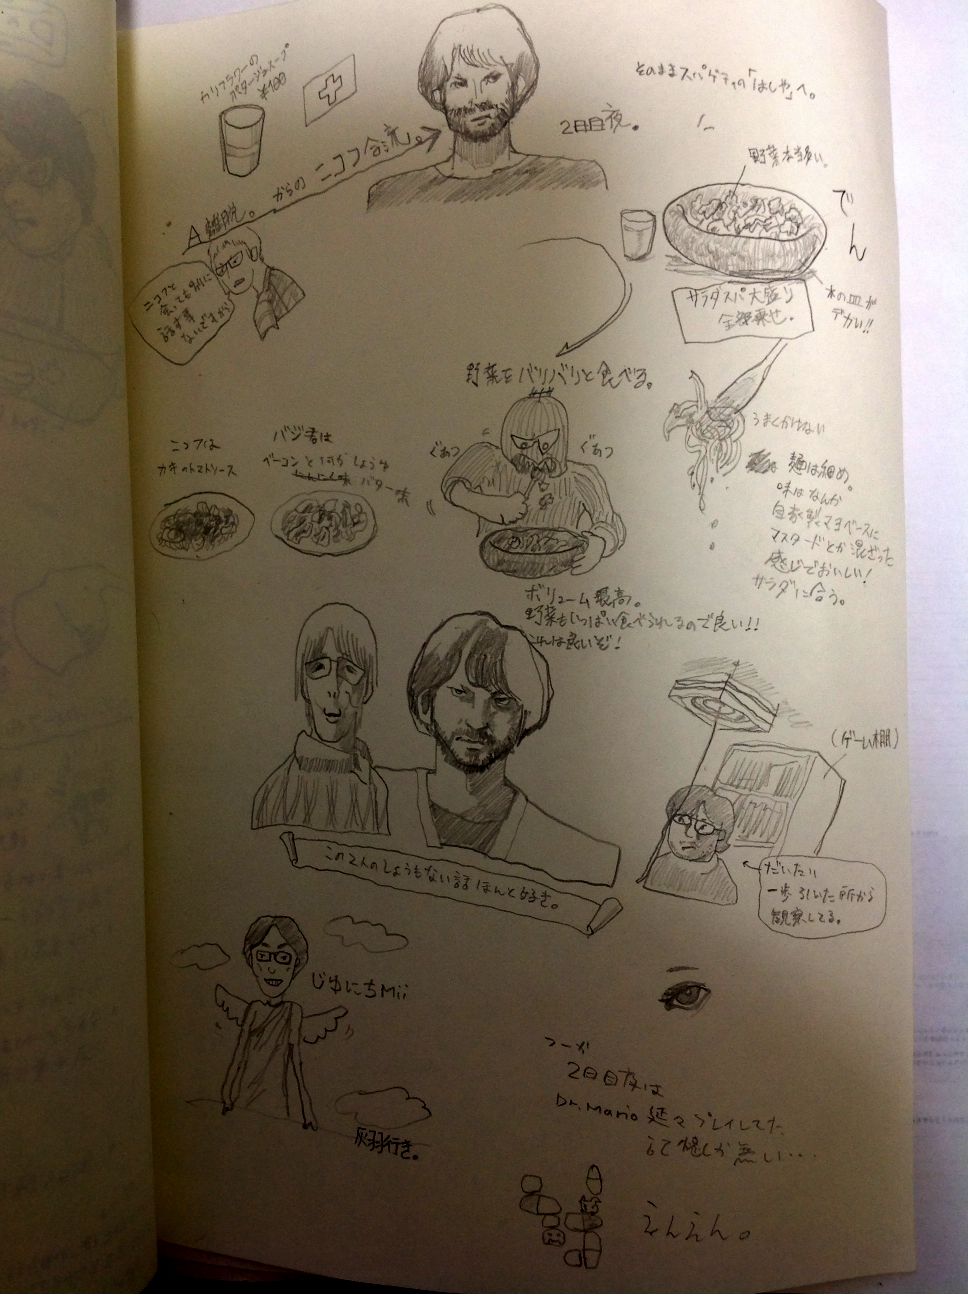 カリフラワーの
ポタージュスープ
¥100
A離脱。からの ニコフ合流。
2日目夜。
そのままスパゲティの「はしや」へ。
野菜本当多い。
でん
木の皿が
デカい!!
サラダスパ大盛り
全部乗せ。
ニコフと
会っても別に
話す事
ないですから
野菜をバリバリと食べる。
ぐあつ
ぐあつ
うまくかけない
麺は細め。
味はなんか
自家製マヨベースに
マスタードとか混ざった
感じでおいしい!
サラダに合う。
ニコフは
カキのトマトソース
バジ君は
ベーコンとなんかしょうゆ
バター味
ボリューム最高。
野菜もいっぱい食べられるので良い!!
これは良いぞ!
この2人のしょうもない話ほんと好き。
(ゲーム棚)
だいたい
一歩引いた所から
観察してる。
じゆにちMii
灰羽行き。
つーか
2日目夜は
Dr.Mario 延々プレイしてた
記憶しか無い…
えんえん。